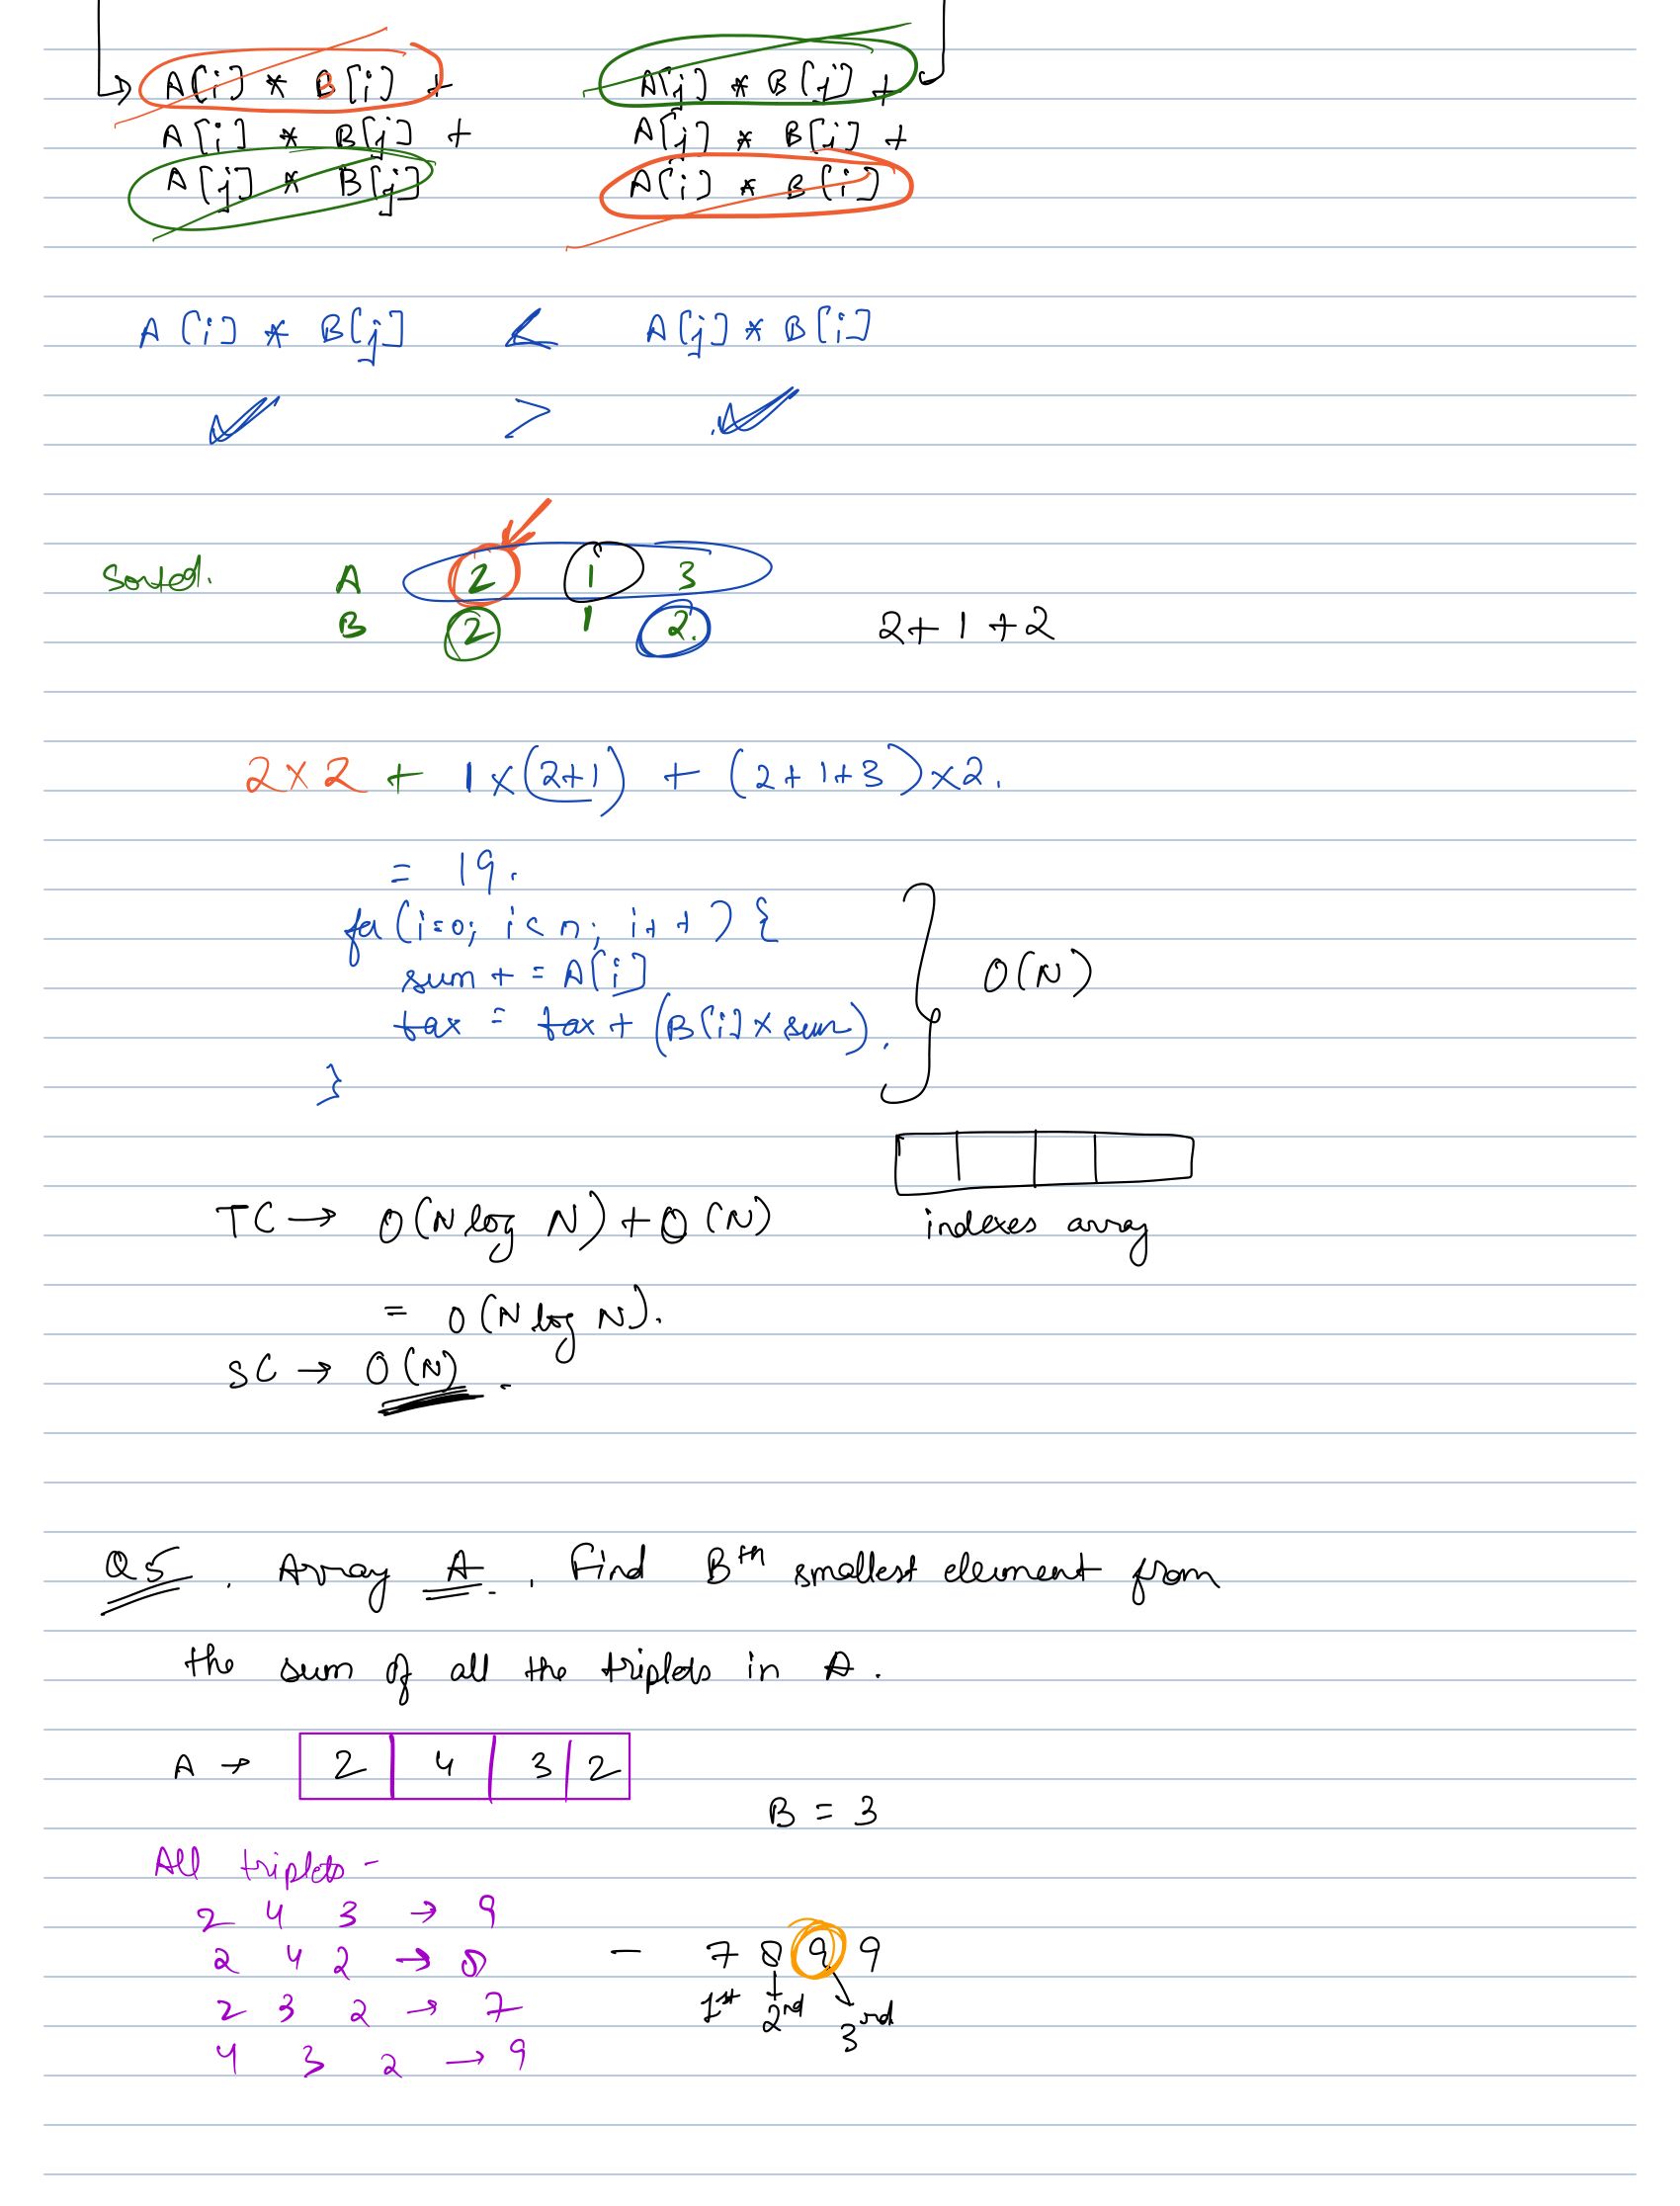 A[i] * B[i] + A[j] * B[j] +
A[i] * B[j] + A[j] * B[i] +
A[j] * B[j] A[i] * B[i]
A[i] * B[j] < A[j] * B[i]
>
Sorted. A 2 1 3
B 2 1 2. 2+1+2
2×2 + 1×(2+1) + (2+1+3)×2.
= 19.
for(i=0; i<n; i++){
sum += A[i]
tax = tax + (B[i] × sum).
}
O(N)
TC → O(N log N) + O(N) indexes array
= O(N log N).
SC → O(N).
Q5. Array A. Find Bth smallest element from
the sum of all the triplets in A.
A → 2 4 3 2
B = 3
All triplets -
2 4 3 → 9
2 4 2 → 8 - 7 8 9 9
2 3 2 → 7 1st 2nd 3rd
4 3 2 → 9